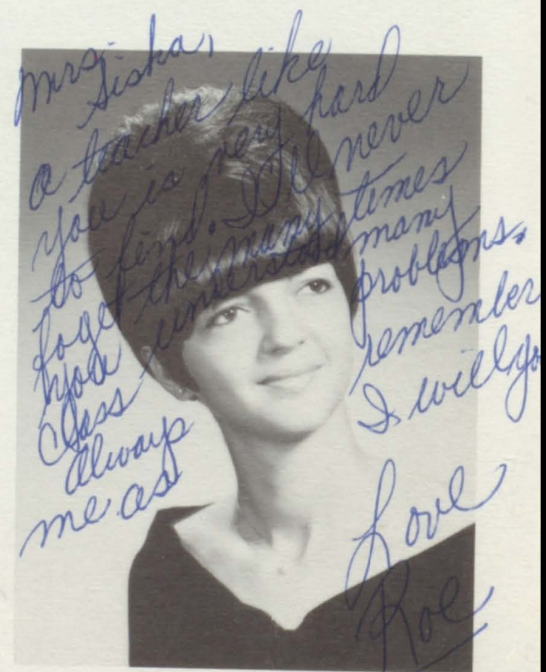 Mrs. Siska,
a teacher like
you is very hard
to find. I'll never
foget the many times
you understood many
class problems.
Always remember
me as I will yo
Love
Roe